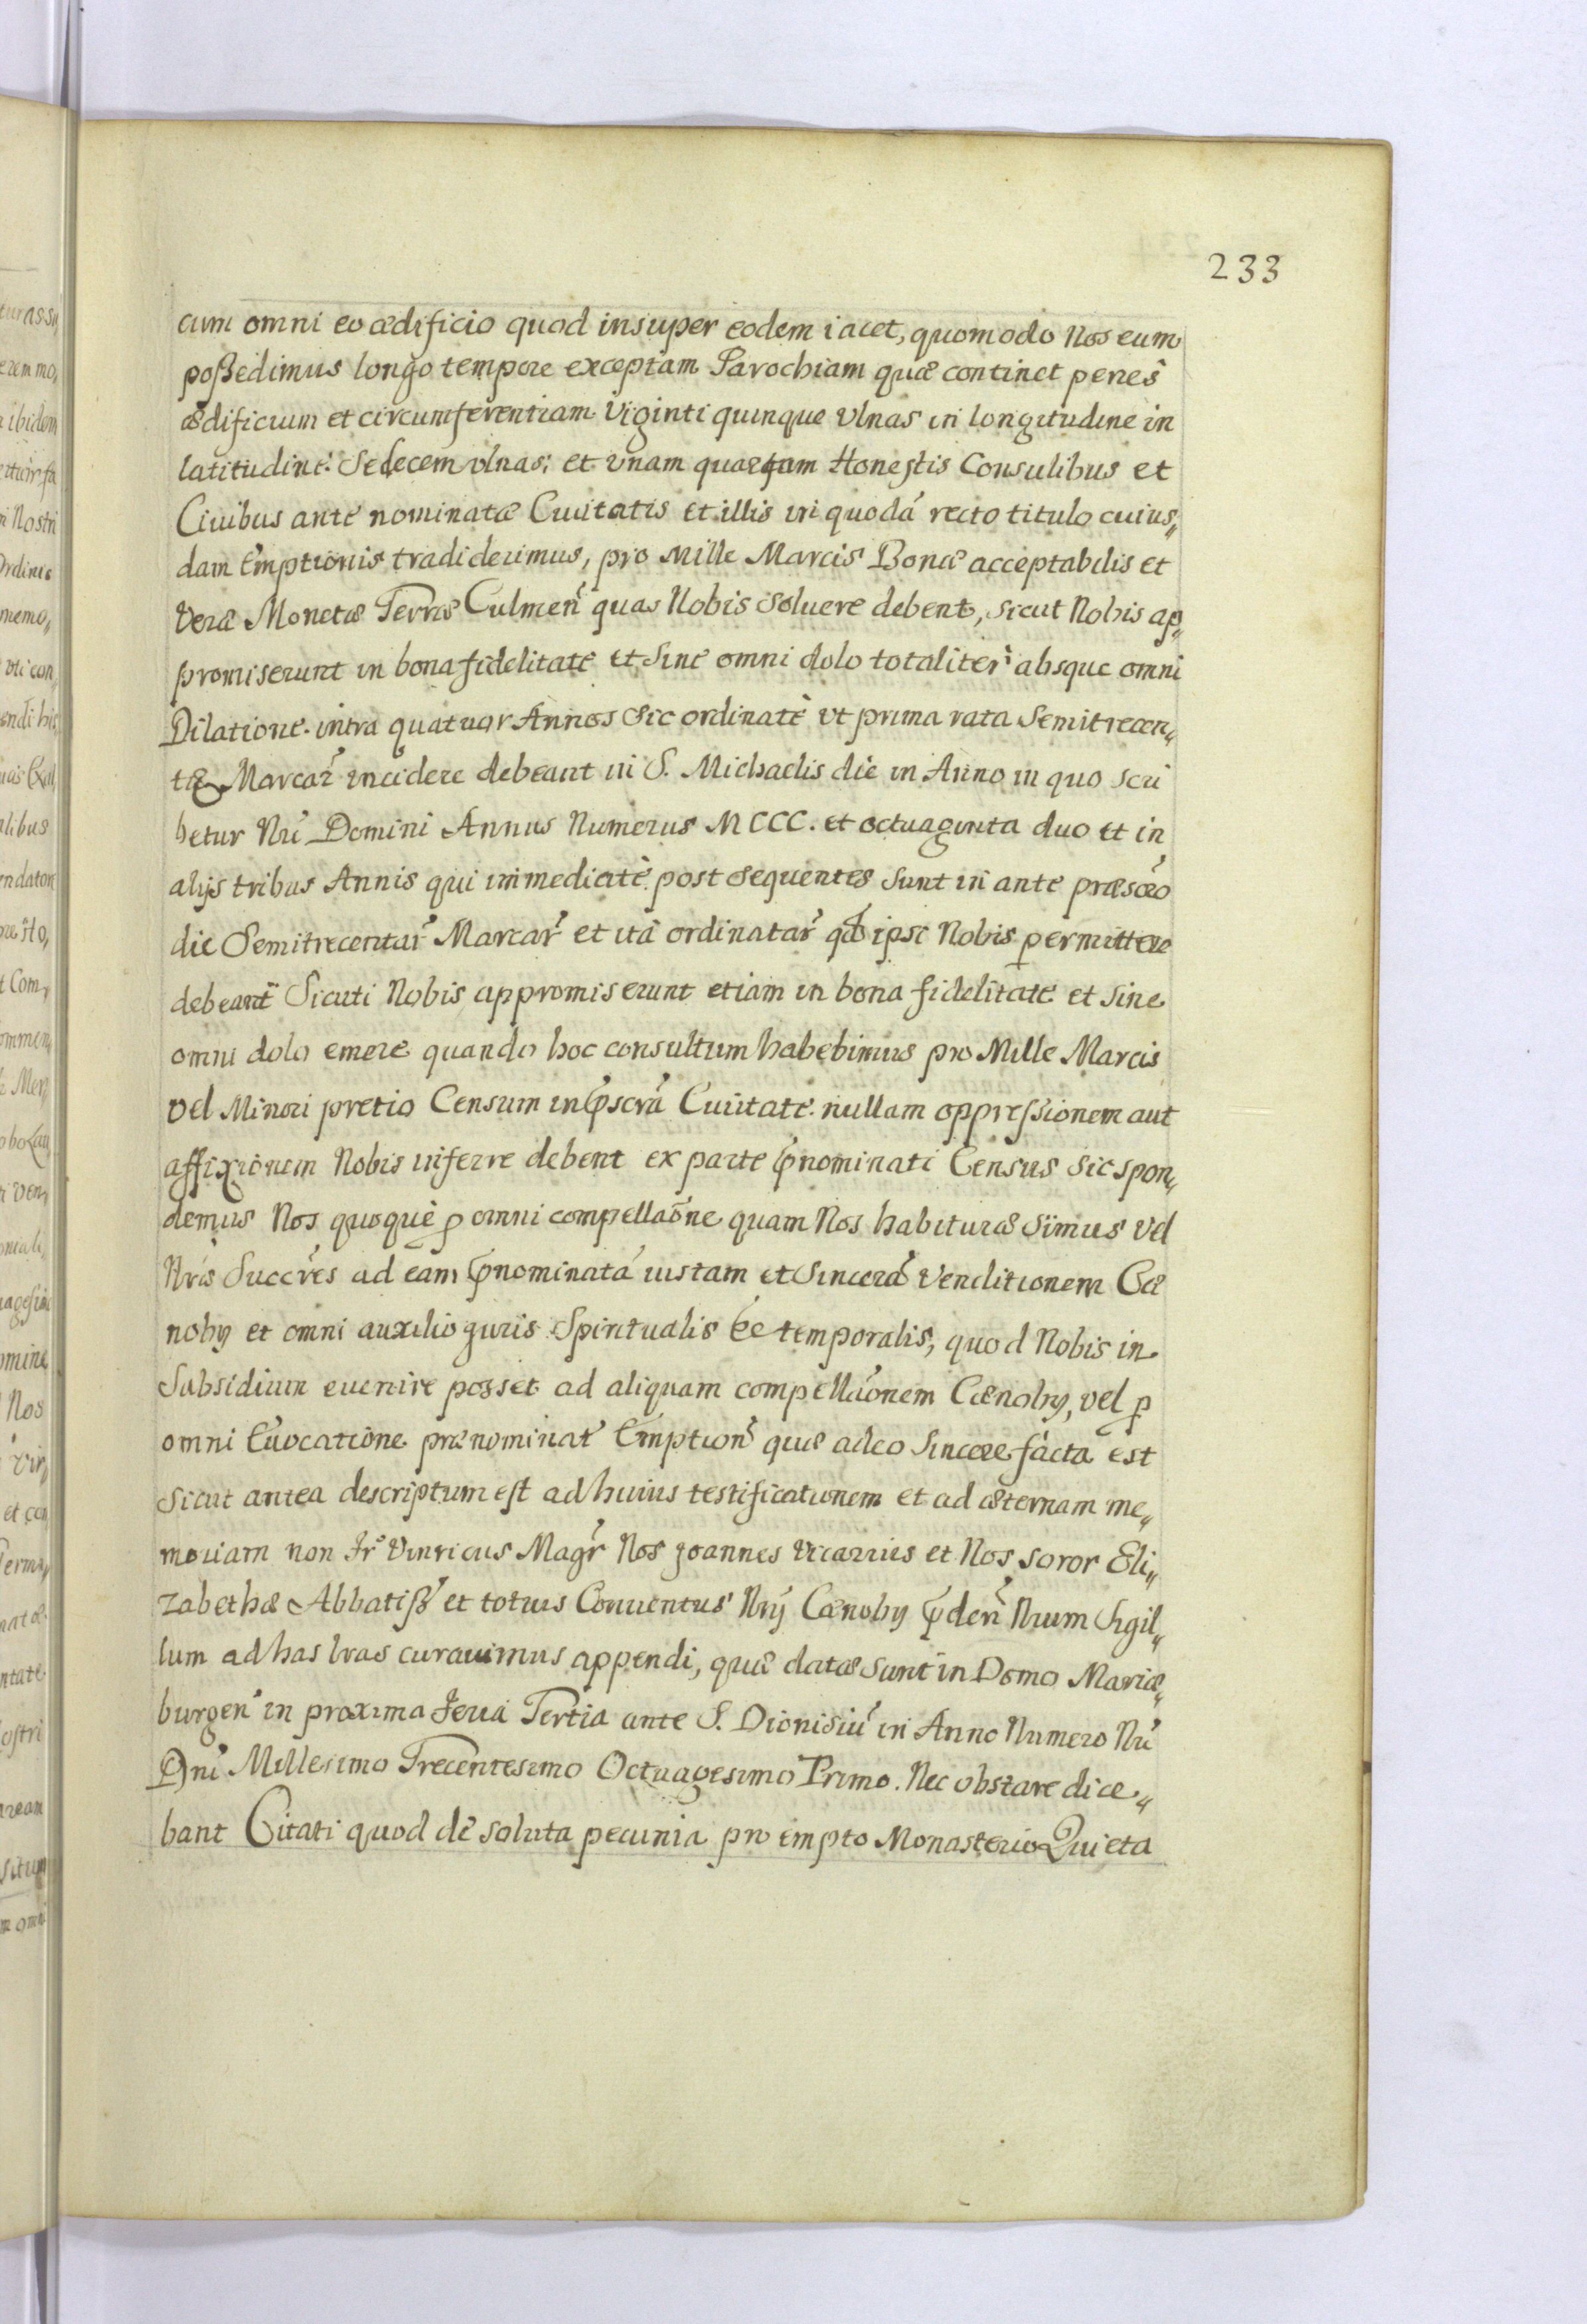 233
cum omni eo ædificio quod insuper eodem iacet, quomodo Nos eum
poßedimus longo tempore exceptam Parochiam quæ continet penes
ædificium et circumferentiam Viginti quinque Vlnas in longitudine in
latitudine Sedecem vlnas; et vnam quartam Honestis Consulibus et
Ciuibus ante nominatæ Ciuitatis et illis in quodá recto titulo cuius„
dam Emptionis tradiderimus, pro Mille Marcis Bonæ acceptabilis et
Veræ Monetæ Terræ Culmeñ quas Nobis Soluere debent, sicut Nobis ap„
promiserunt in bona fidelitate et Sine omni dolo totaliter absque omni
Dilatione intra quatuor Annos Sic ordinatè vt prima rata Semitrecen„
tæ Marcar̃ incidere debeant in S. Michaelis die in Anno in quo scri
betur Nri Domini Annus Numerus MCCC. et octuaginta duo et in
alijs tribus Annis qui immediatè post Sequentes Sunt in ante præscõ
die Semitrecentar̃ Marcar̃ et itâ ordinatar̃ qd ipsi Nobis permittere
debeant Sicuti Nobis appromiserunt etiam in bona fidelitate et Sine
omni dolo emere quando hoc consultum habebimus pro Mille Marcis
vel Minori pretio Censum in p̃scrã Ciuitate nullam oppreßionem aut
affixionem Nobis inferre debent ex parte p̃nominati Census Sic spon„
demus Nos quoquè p omni compellaõne quam Nos habituræ Simus vel
Nrís Succr̃es ad eam p̃nominatá iustam et Sincerá Venditionem Cæ
nobij et omni auxilio juris Spiritualis Ee temporalis, quod Nobis in
Subsidium euenire posset ad aliquam compellaõnem Cænobij, vel p
omni Euocatione prænominat̃ Emptioñ quæ adeo Sincere facta est
Sicut antea descriptum est ad huius testificationem et ad æternam me„
moriam non Fr̃ Vinricus Magr̃ Nos Joannes Vicarius et Nos soror Eli„
zabethæ Abbatiß et totus Conuentus Nrij Cænobij p̃deñ Nrum Sigil„
lum ad has lras curauimus appendi, quæ datæ Sunt in Domo Mariæ„
burgeñ in proxima Feria Tertia ante S. Dionisiũ in Anno Numero Nri
Dni Millesimo Trecentesimo Octuagesimo Primo. Nec obstare dice„
bant Citati quod de soluta pecunia pro empto Monasterio Quieta